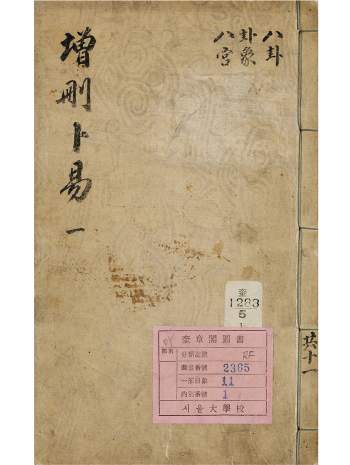 八卦
卦象
八宮
增刪卜易 一
共十一
奎
1283
5
1
奎章閣圖書
RF
圖書番號 2365
一部冊數 11
內別番號 1
서울大學校